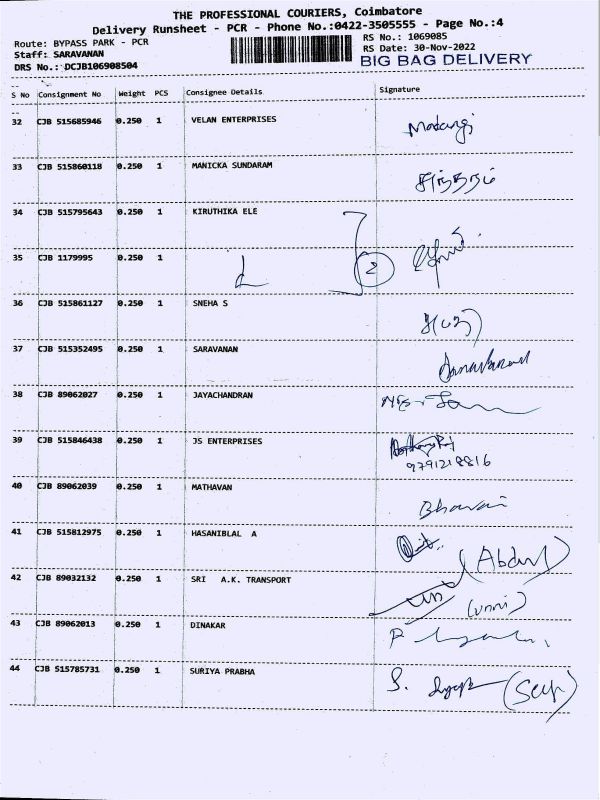 THE PROFESSIONAL COURIERS, Coimbatore
Delivery Runsheet - PCR - Phone No.:0422-3505555 - Page No.:4
Route: BYPASS PARK - PCR
RS No.: 1069085
Staff: SARAVANAN
RS Date: 30-Nov-2022
DRS No.: DCJB106908504
BIG BAG DELIVERY
S No Consignment No Weight PCS Consignee Details Signature
32 CJB 515685946 0.250 1 VELAN ENTERPRISES
33 CJB 515860118 0.250 1 MANICKA SUNDARAM
34 CJB 515795643 0.250 1 KIRUTHIKA ELE
35 CJB 1179995 0.250 1 2
36 CJB 515861127 0.250 1 SNEHA S
37 CJB 515352495 0.250 1 SARAVANAN
38 CJB 89062027 0.250 1 JAYACHANDRAN
39 CJB 515846438 0.250 1 JS ENTERPRISES
9791218816
40 CJB 89062039 0.250 1 MATHAVAN
41 CJB 515812975 0.250 1 HASANIBLAL A
(Abdul)
42 CJB 89032132 0.250 1 SRI A.K. TRANSPORT
(unni)
43 CJB 89062013 0.250 1 DINAKAR
44 CJB 515785731 0.250 1 SURIYA PRABHA S.